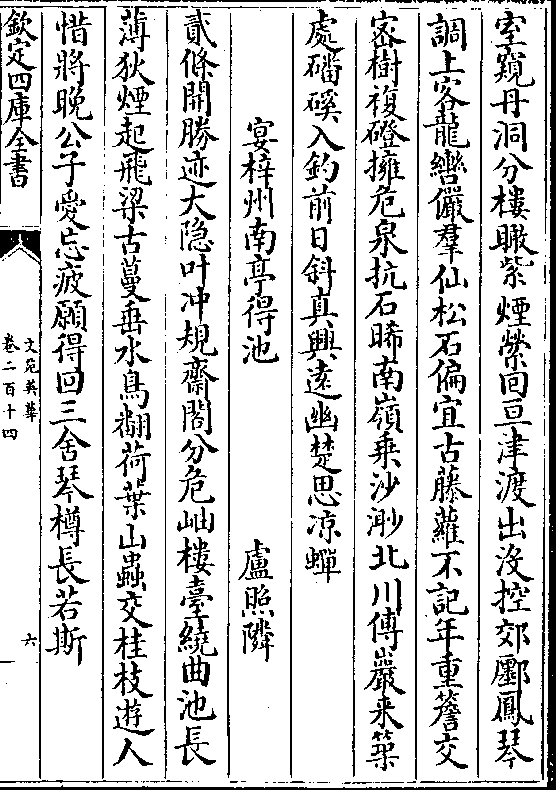 室窺丹洞分樓瞰紫煙縈回亘津渡出沒控郊鄽鳳琴
調上客龍轡儼羣仙松石偏宜古藤蘿不記年重簷交
密樹複磴擁危泉抗石晞南嶺乗沙渺北川傅巖来築
處磻磎入釣前日斜真興逺幽楚思凉蟬
宴梓州南亭得池　盧照隣
貳條開勝迹大隐叶冲規齋閣分危岫樓臺繞曲池長
薄狄煙起飛梁古蔓垂水鳥翻荷葉山蟲交桂枝遊人
惜將晚公子愛忘疲願得回三舍琴樽長若斯
欽定四庫全書
文苑英華
卷二百十四
六